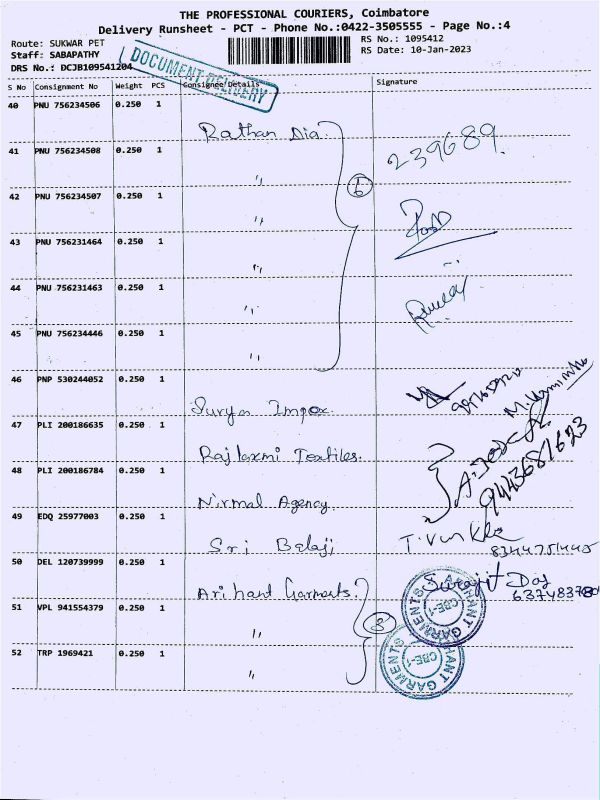 THE PROFESSIONAL COURIERS, Coimbatore
Delivery Runsheet - PCT - Phone No.:0422-3505555 - Page No.:4
Route: SUKWAR PET
RS No.: 1095412
Staff: SABAPATHY
RS Date: 10-Jan-2023
DRS No.: DCJB109541204
DOCUMENT DELIVERY
S No Consignment No Weight PCS Consignee Details Signature
40 PNU 756234506 0.250 1
Rathan Dia
41 PNU 756234508 0.250 1
239689
"
6
42 PNU 756234507 0.250 1
"
43 PNU 756231464 0.250 1
"
44 PNU 756231463 0.250 1
"
45 PNU 756234446 0.250 1
"
46 PNP 530244052 0.250 1
Surya Impex
47 PLI 200186635 0.250 1
Rajlaxmi Textiles.
48 PLI 200186784 0.250 1
9443681623
Nirmal Agency.
49 EDQ 25977003 0.250 1
Sri Belaji
8344751445
50 DEL 120739999 0.250 1
Arihant Garments.
Surajit Das
51 VPL 941554379 0.250 1
"
3
ARIHANT GARMENTS
CBE-1
52 TRP 1969421 0.250 1
"
ARIHANT GARMENTS
CBE-1